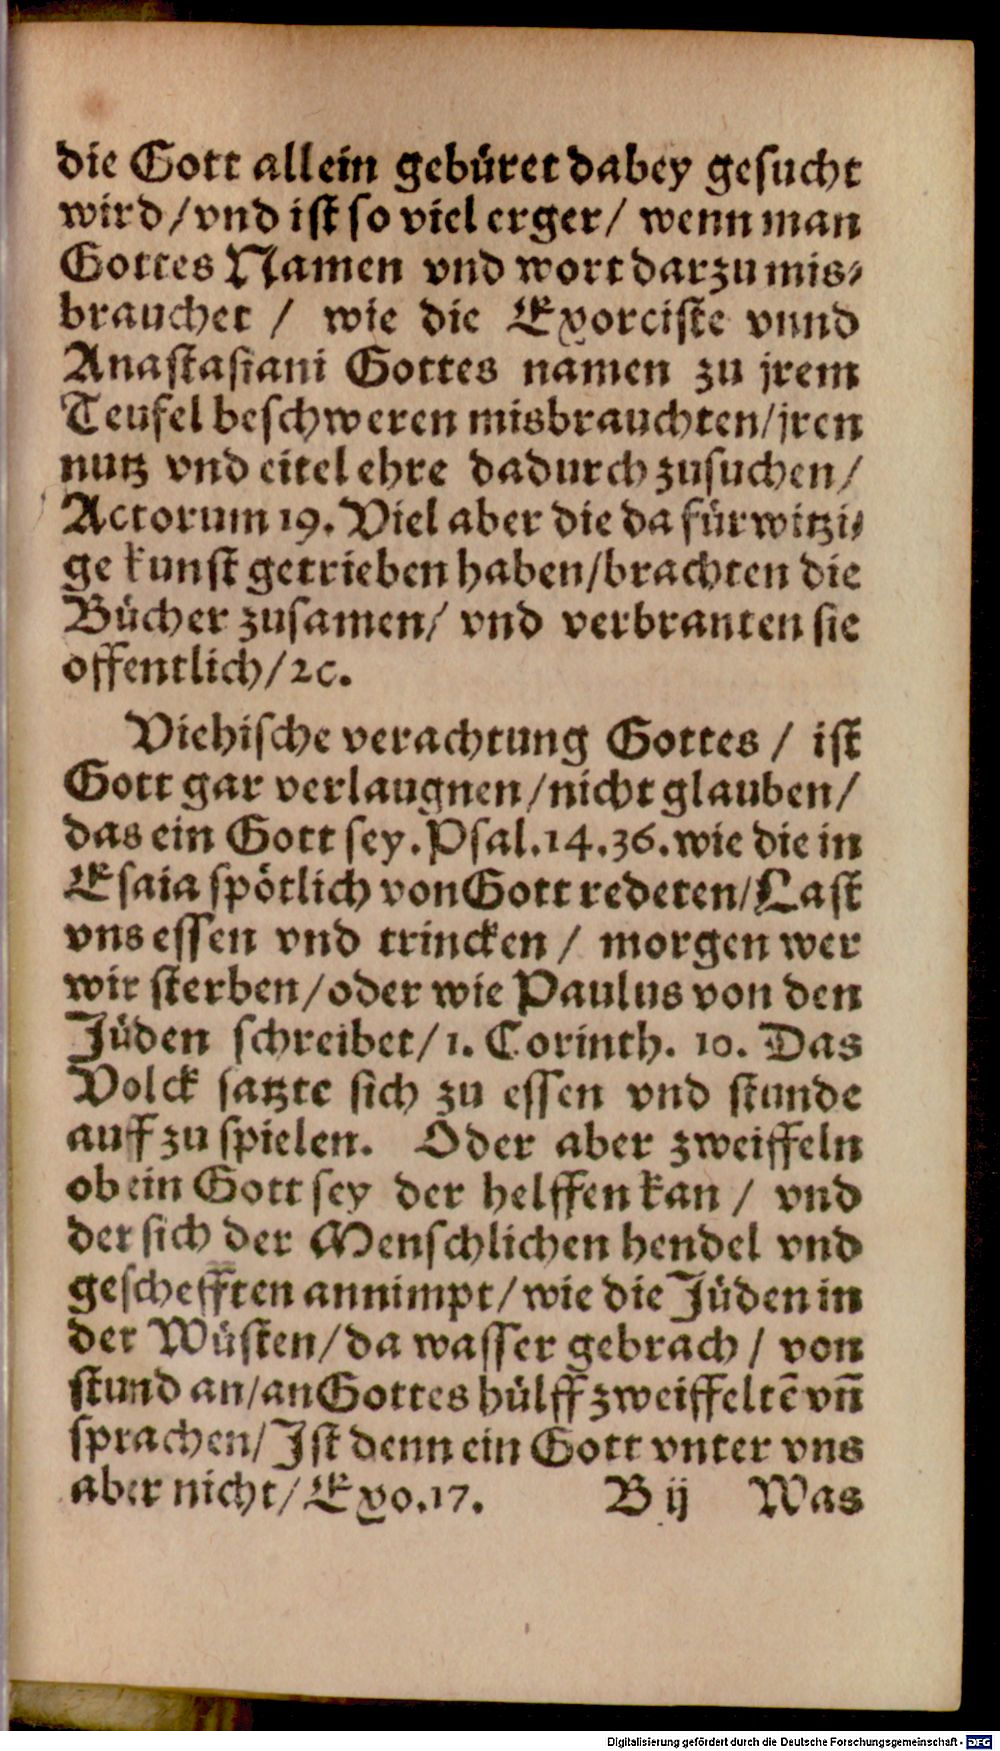 die Gott allein gebüret dabey gesucht
wird / vnd ist so viel erger / wenn man
Gottes Namen vnd wort darzu mis⸗
brauchet / wie die Exorciste vnnd
Anastasiani Gottes namen zu jrem
Teufel beschweren misbrauchten / jren
nutz vnd eitel ehre dadurch zusuchen /
Actorum 19. Viel aber die da fürwitzi⸗
ge kunst getrieben haben / brachten die
Bücher zusamen / vnd verbranten sie
offentlich / ꝛc.
Viehische verachtung Gottes / ist
Gott gar verlaugnen / nicht glauben /
das ein Gott sey. Psal. 14. 36. wie die in
Esaia spötlich von Gott redeten / Last
vns essen vnd trincken / morgen wer
wir sterben / oder wie Paulus von den
Jüden schreibet / 1. Corinth. 10. Das
Volck satzte sich zu essen vnd stunde
auff zu spielen. Oder aber zweiffeln
ob ein Gott sey der helffen kan / vnd
der sich der Menschlichen hendel vnd
geschefften annimpt / wie die Jüden in
der Wüsten / da wasser gebrach / von
stund an / an Gottes hülff zweiffeltē vn̄
sprachen / Ist denn ein Gott vnter vns
aber nicht / Exo. 17. B ij Was
Digitalisierung gefördert durch die Deutsche Forschungsgemeinschaft - DFG